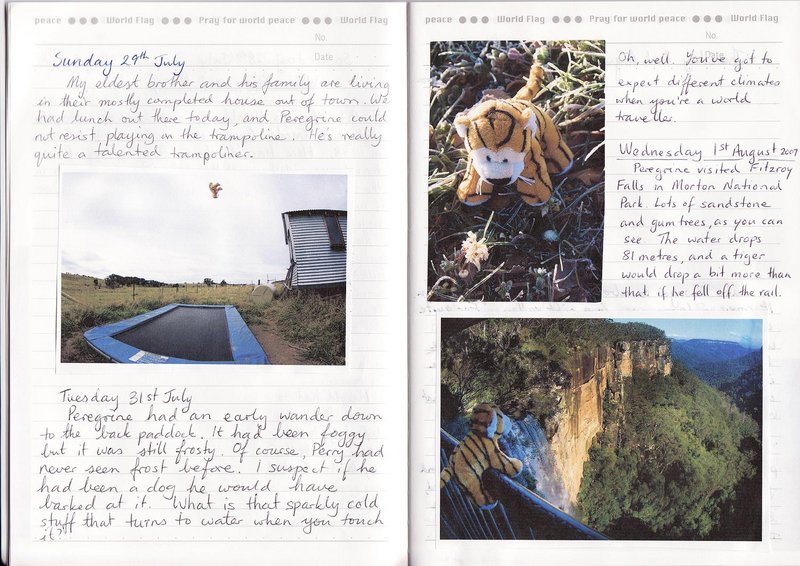 peace World Flag Pray for world peace World Flag
No.
Date
Sunday 29th July
My eldest brother and his family are living
in their mostly completed house out of town. We
had lunch out there today, and Peregrine could
not resist playing on the trampoline. He's really
quite a talented trampoliner.
Tuesday 31st July
Peregrine had an early wander down
to the back paddock. It had been foggy
but it was still frosty. Of course, Perry had
never seen frost before. I suspect if he
had been a dog he would have
barked at it. What is that sparkly cold
stuff that turns to water when you touch
it?
peace World Flag Pray for world peace World Flag
No.
Date
Oh, well. You've got to
expect different climates
when you're a world
traveller.
Wednesday 1st August 2007
Peregrine visited Fitzroy
Falls in Morton National
Park. Lots of sandstone
and gum trees, as you can
see. The water drops
81 metres, and a tiger
would drop a bit more than
that if he fell off the rail.